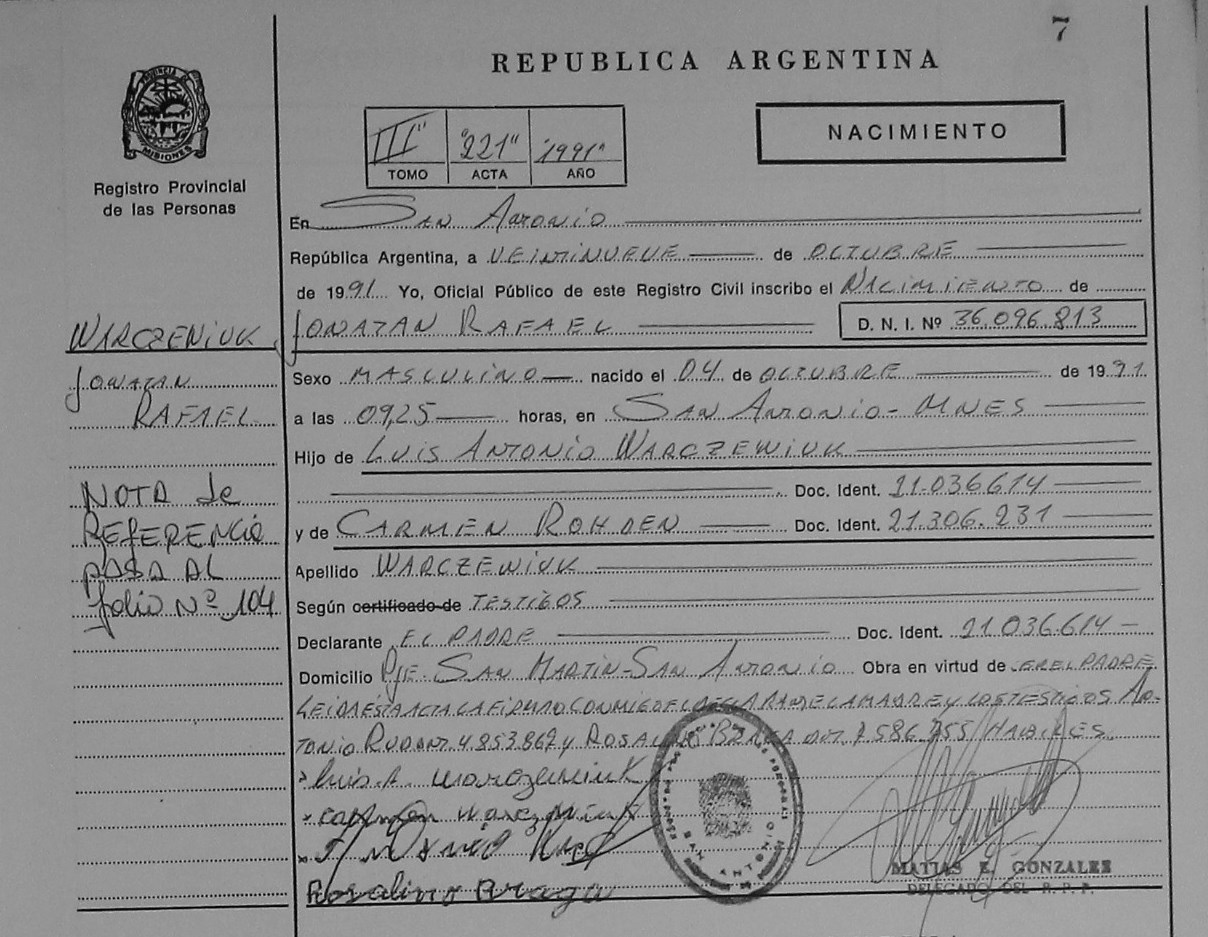 7
REPUBLICA ARGENTINA
PROVINCIA DE
MISIONES
Registro Provincial
de las Personas
III" "221" "1991"
TOMO ACTA AÑO
NACIMIENTO
En San Antonio
República Argentina, a VEINTINUEVE de OCTUBRE
de 1991 Yo, Oficial Público de este Registro Civil inscribo el NACIMIENTO de
JONATAN RAFAEL D. N. I. Nº 36.096.813
WARCZEWIUK
JONATAN
RAFAEL
NOTA de
REFERENCIA
PASA AL
folio Nº 104
Sexo MASCULINO nacido el 04 de OCTUBRE de 1991
a las 09,25 horas, en SAN ANTONIO-MNES
Hijo de LUIS ANTONIO WARCZEWIUK
Doc. Ident. 21.036.614
y de CARMEN ROHDEN Doc. Ident. 21.306.231
Apellido WARCZEWIUK
Según certificado de TESTIGOS
Declarante EL PADRE Doc. Ident. 21.036.614
Domicilio Pje. SAN MARTIN-SAN ANTONIO Obra en virtud de SER EL PADRE
LEIDA ESTA ACTA LA FIRMAN CONMIGO EL DECLARANTE LA MADRE Y LOS TESTIGOS AN-
TONIO 4.853.862 y ROSALINO BRAGA 7.586.755 HABILES.
Luis A. Warczewiuk
Carmen
Antonio
Rosalino Braga
SAN ANTONIO
MATIAS E. GONZALEZ
DELEGADO DEL R. P. P.